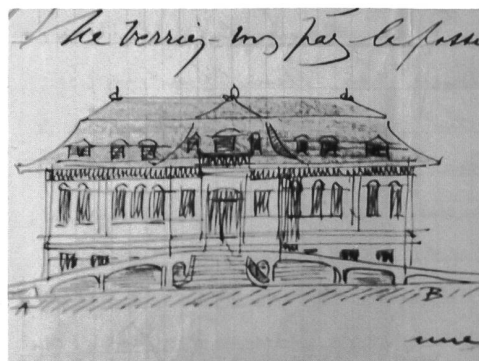 Ne verriez-vous pas la possi
A B
une